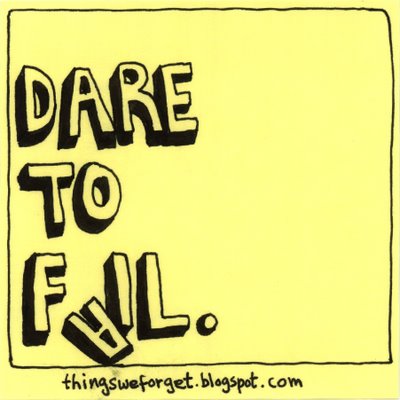 DARE
TO
FAIL.
thingsweforget.blogspot.com